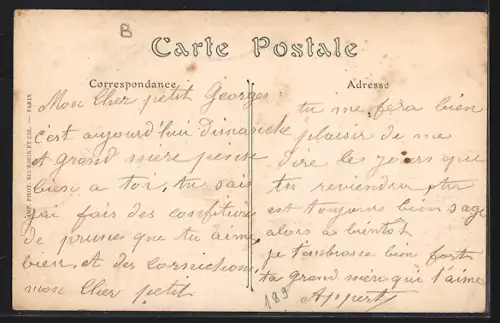 B
Carte Postale
Correspondance
Mon Cher petit Georges :
c'est aujourd'hui Dimanche
et grand mère pense
bien a toi, tu sais
j'ai fais des confitures
de prune que tu aime
bien, et des Cornichons
mon Cher petit
Adresse
tu me fera bien
plaisir de me
dire le jours que
tu reviendra, tu
est toujours bien sage
alors a bientot
je t'embrasse bien fort
ta grand mère qui t'aime
Appert
189
PARIS